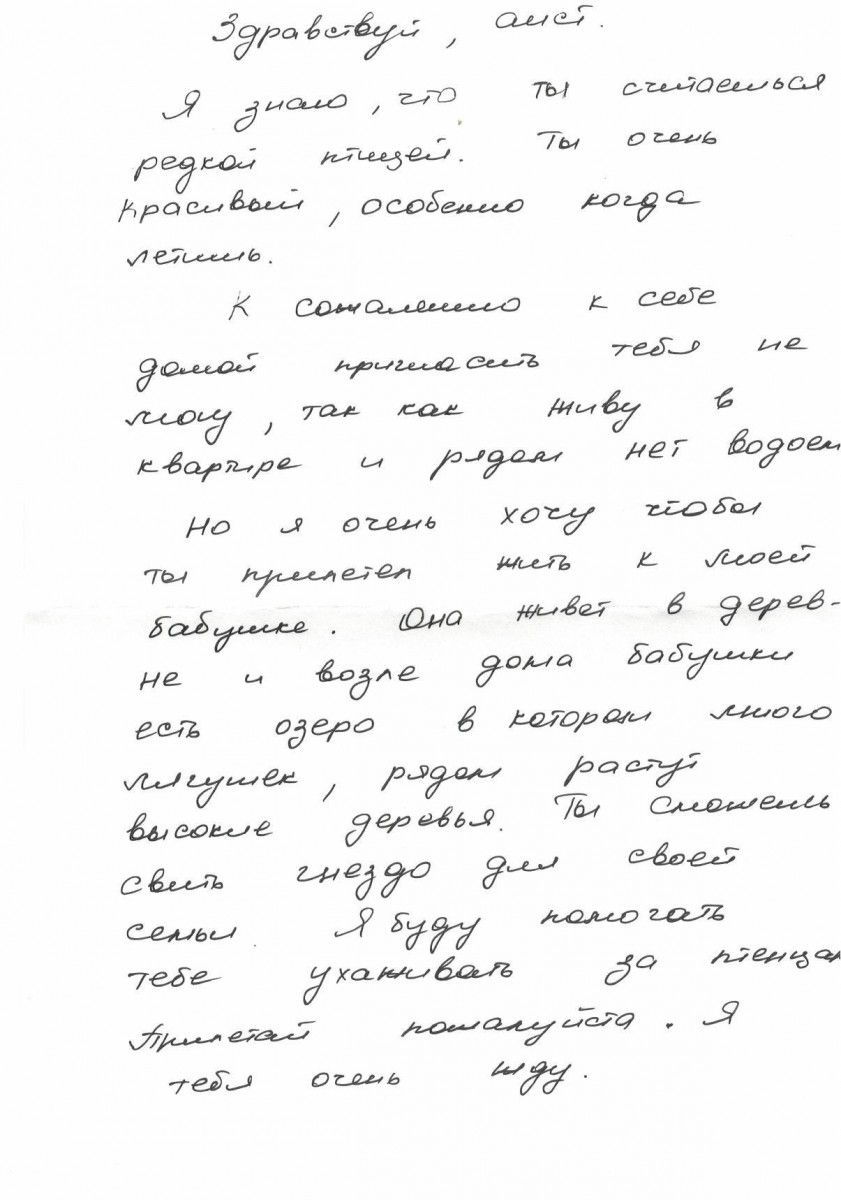 Здравствуй, аист.
Я знаю, что ты считаешься
редкой птицей. Ты очень
красивый, особенно когда
летишь.
К сожалению к себе
домой пригласить тебя не
могу, так как живу в
квартире и рядом нет водоем
Но я очень хочу чтобы
ты прилетел жить к моей
бабушке. Она живет в дерев-
не и возле дома бабушки
есть озеро в котором много
лягушек, рядом растут
высокие деревья. Ты сможешь
свить гнездо для своей
семьи. Я буду помогать
тебе ухаживать за птенцам
Прилетай пожалуйста. Я
тебя очень жду.